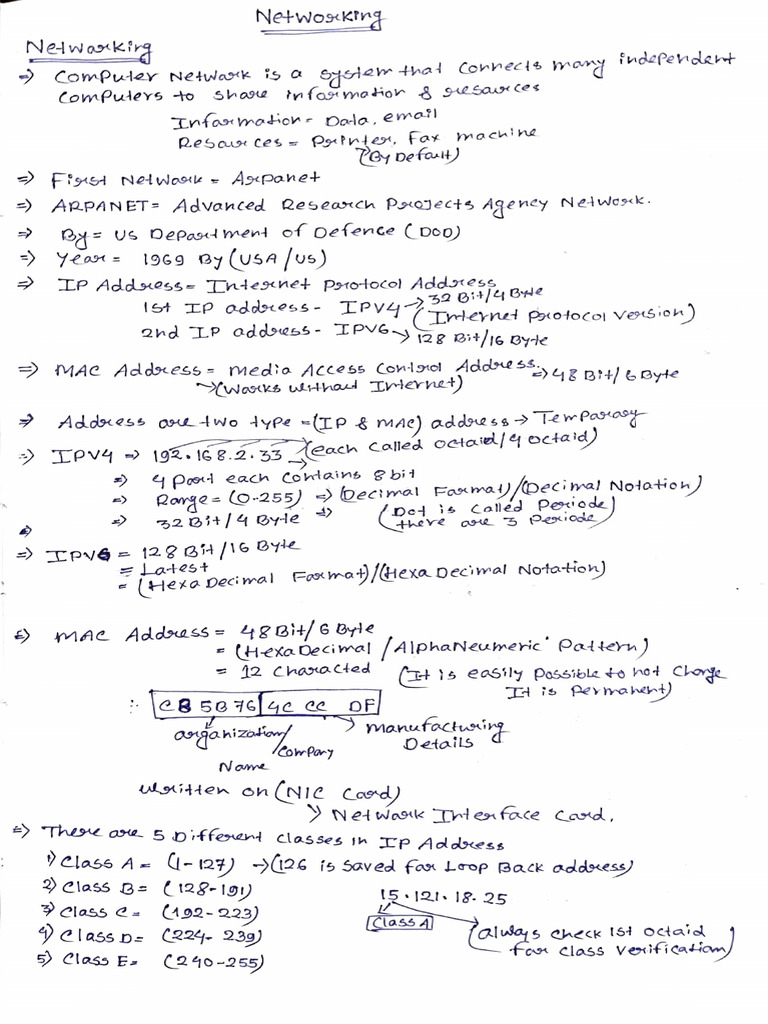 Networking
Networking
=> Computer Network is a system that connects many independent
computers to share information & resources
Information = Data, email
Resources = Printer, Fax machine
(By Default)
=> First Network = Arpanet
=> ARPANET = Advanced Research Projects Agency Network.
=> By = US Department of Defence (DOD)
=> Year = 1969 By (USA/US)
=> IP Address = Internet Protocol Address
1st IP address - IPV4 → 32 Bit/4 Byte
(Internet Protocol Version)
2nd IP address - IPV6 → 128 Bit/16 Byte
=> MAC Address = Media Access Control Address. => 48 Bit/6 Byte
→ (Works without Internet)
=> Address are two type = (IP & MAC) address → Temparary
=> IPV4 => 192.168.2.33 → (each called octaid/4 octaid)
=> 4 Part each contains 8 bit
=> Range = (0-255) => (Decimal Format)/(Decimal Notation)
=> 32 Bit/4 Byte => (Dot is called Periode)
(there are 3 Periode)
=>
=> IPV6 = 128 Bit/16 Byte
= Latest
= (Hexa Decimal Format)/(Hexa Decimal Notation)
=> MAC Address = 48 Bit/6 Byte
= (HexaDecimal / AlphaNeumeric Pattern)
= 12 Characted (It is easily Possible to not Change
It is Permanent)
∴ C8 5B 76 4C CC DF
organization/ Company Name
→ manufacturing Details
Written on (NIC Card)
→ Network Interface Card.
=> There are 5 Different classes in IP Address
1) Class A = (1-127) → (126 is saved for Loop Back address)
2) Class B = (128-191)
15.121.18.25
3) Class C = (192-223)
Class A
4) Class D = (224-239)
(always check 1st octaid
for class verification)
5) Class E = (240-255)